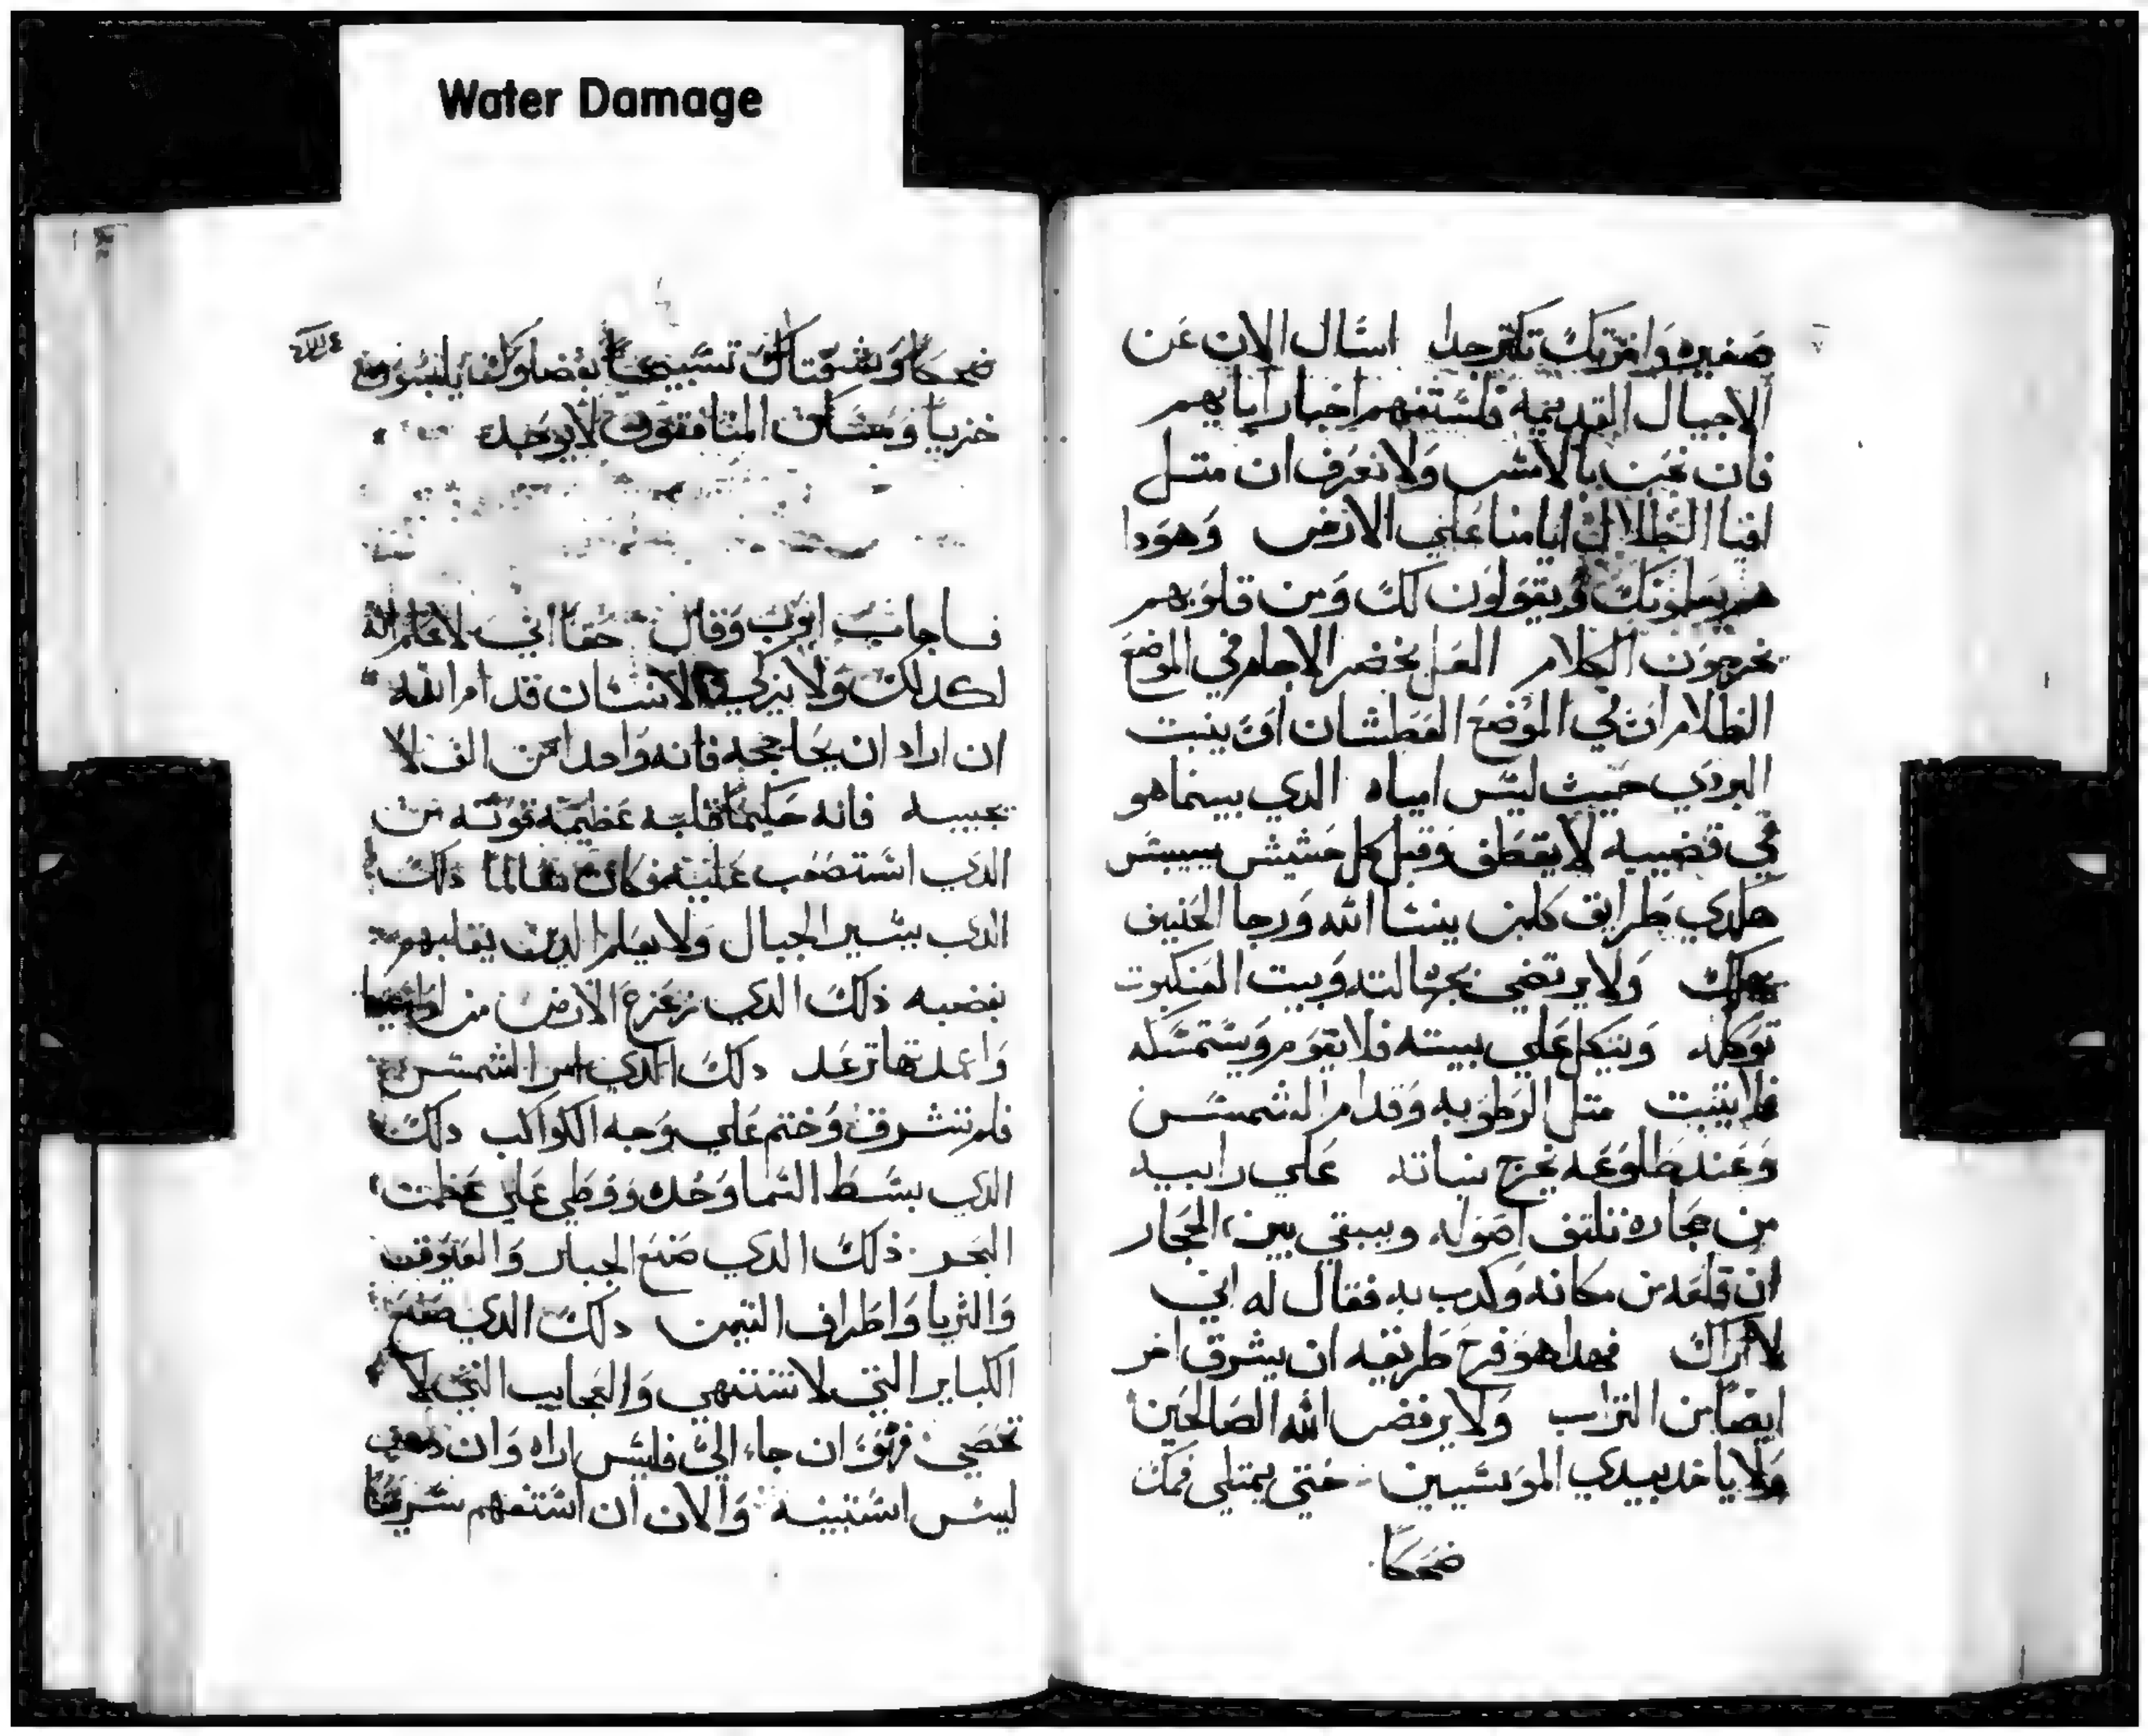 Water Damage
صغيره واخرتك تكتر جدا اسال الان عن
الاجيال القديمه فلستفهم اخبار ابايهم
فان نحن بالامس ولا نعرف ان متل
افيا الظلال ايامنا علي الارض وهودا
هم يعلمونك ويقولون لك ومن قلوبهم
يخرجون الكلام العل يخضر الاحام في الموضع
الظلام ان في الموضع العطشان او ينبت
البردي حيث ليس امياه الدي بينما هو
في قضيبه لا يقطف وقبل كل حشيش ييبس
هكدي طرايق كلمن ينسا الله ورجا الحنيف
يهلك ولا يرتضي بجهالته وبيت العنكبوت
توكله ويتكل علي بيته فلا يقوم ويستمسكه
فلا يتبت متل الرطوبه وقدام الشمس
وعند طلوعه يخرج نباته علي رابيه
من حجاره تلتف اصوله ويبقي بين الحجار
ان قلعه من مكانه وكدب به فقال له اني
لا اراك فهدا هو فرح طريقه ان يشرق اخر
ايضا من التراب ولا يرفض الله الصالحين
ولا ياخد بيدي الموسيين حتي يمتلي فمك
ضحكا
ضحكا وشفتاك تسبيحا بفضلوك يلبسون
خزيا ومساكن المنافقون لا يوجد
فاجاب ايوب وقال حقا اني لاعلم انه
لكدلك ولا يزكي الانسان قدام الله
ان اراد ان يحاججه فانه واحدا من الف لا
يجيبه فانه حكيما قلبه عظيمه قوته من
الدي استصعب عليه فكان سالما دلك
الدي يسير الجبال ولا يعلم الدين يقلبهم
بغضبه ذلك الدي زعزع الارض من
واعمدتها ترعد دلك الدي امر الشمس
فلم تشرق وختم علي وجه الكواكب دلك
الدي بسط السما وحده ووطي علي عظمت
البحر ذلك الدي صنع الجبار والعيوق
والثريا واطراف التيمن دلك الدي صنع
الكباير التي لا تنتهي والعجايب التي لا
تحصي فهو ان جاء الي فليس اراه وان دهب
ليس استبينه والان ان استفهم سريعا